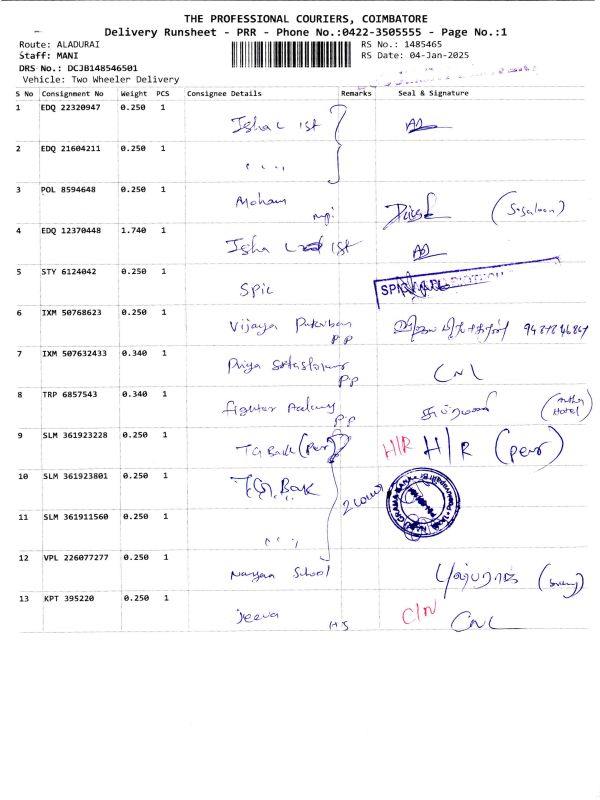 THE PROFESSIONAL COURIERS, COIMBATORE
Delivery Runsheet - PRR - Phone No.:0422-3505555 - Page No.:1
Route: ALADURAI RS No.: 1485465
Staff: MANI RS Date: 04-Jan-2025
DRS No.: DCJB148546501
Vehicle: Two Wheeler Delivery
S No Consignment No Weight PCS Consignee Details Remarks Seal & Signature
1 EDQ 22320947 0.250 1 Isha L ist
2 EDQ 21604211 0.250 1
3 POL 8594648 0.250 1 Mohan
4 EDQ 12370448 1.740 1 Isha ist
5 STY 6124042 0.250 1 SPIC SPIC
6 IXM 50768623 0.250 1 Vijaya PP
7 IXM 507632433 0.340 1 Priya PP CNL
8 TRP 6857543 0.340 1 PP Hotel)
9 SLM 361923228 0.250 1 TG Bank (Per) H/R H/R (Peur)
10 SLM 361923801 0.250 1 TG Bank
11 SLM 361911560 0.250 1
12 VPL 226077277 0.250 1 School
13 KPT 395220 0.250 1 Jeeva HS C/N CNL